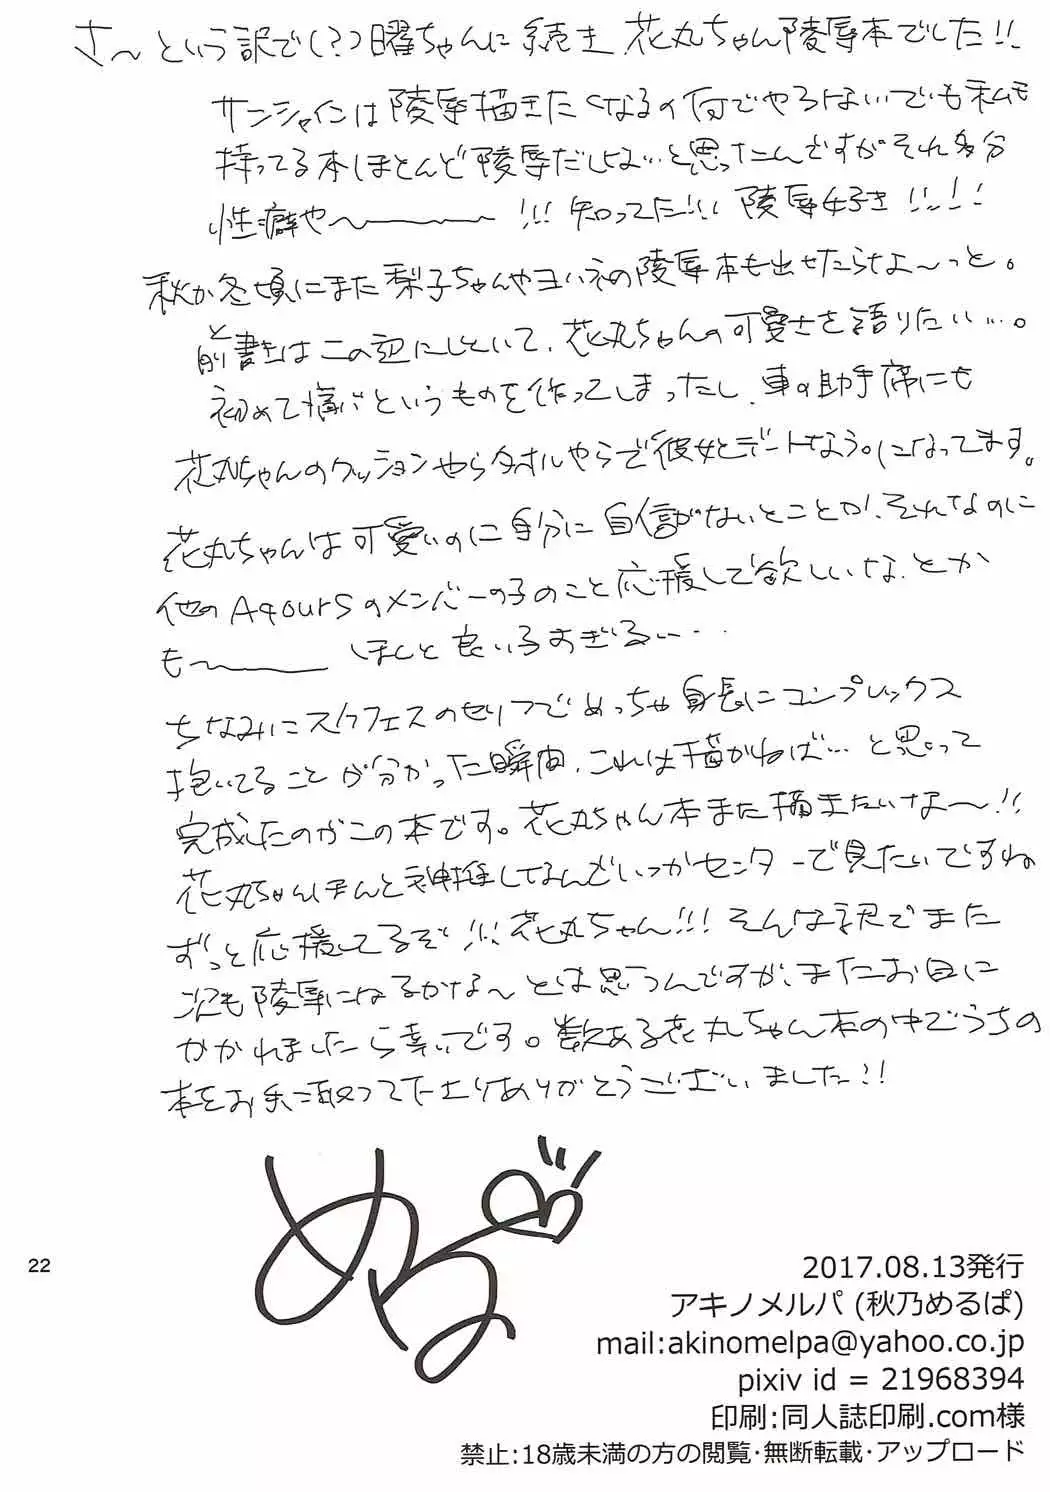 さ～という訳で(?)曜ちゃんに続き 花丸ちゃん陵辱本でした!!
サンシャインは陵辱描きたくなるの何でやろ ないでも私も
持ってる本ほとんど陵辱だしな…と思ったんですがそれ多分
性癖や～ !!! 知ってた!!! 陵辱好き !!!!
秋か冬頃にまた梨子ちゃんやヨハネの陵辱本も出せたらなぁ～っと。
と前書きはこの辺にしといて、花丸ちゃんの可愛さを語りたい…。
初めて痛バというものを作ってしまったし、車の助手席にも
花丸ちゃんのクッションやらタオルやらで彼女とデートなう。になってます。
花丸ちゃんは可愛いのに自分に自信がないとことか、それなのに
他のAqoursのメンバーの子のこと応援して欲しいな、とか
も～ ほんと良い子すぎるぃ…
ちなみにスクフェスのセリフでめっちゃ身長にコンプレックス
抱いてることが分かった瞬間、これは描かねば…と思って
完成したのがこの本です。花丸ちゃん本また描きたいな～!!
花丸ちゃんほんと神推してなんでいつかセンターで見たいですね
ずっと応援してるぞ!!! 花丸ちゃん!!! そんな訳でまた
次も陵辱になるかな～とは思うんですが、またお目に
かかれましたら幸いです。数ある花丸ちゃん本の中でうちの
本をお手に取って下さりありがとうございました!!
める
22
2017.08.13発行
アキノメルパ (秋乃めるぱ)
mail:akinomelpa@yahoo.co.jp
pixiv id = 21968394
印刷:同人誌印刷.com様
禁止:18歳未満の方の閲覧・無断転載・アップロード